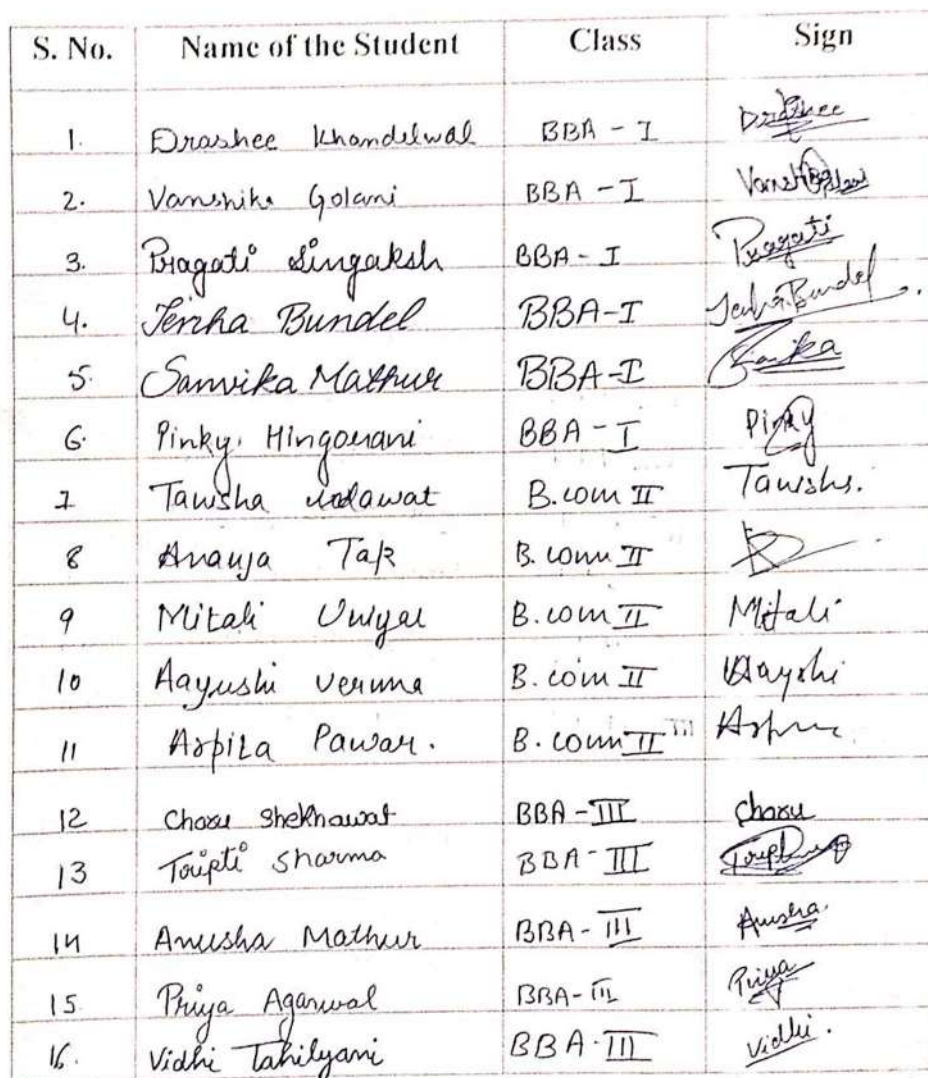 S. No. Name of the Student Class Sign
1. Drashee Khandelwal BBA - I Drashee
2. Vanshika Golani BBA - I
3. Pragati Singaksh BBA - I Pragati
4. Jenha Bundel BBA-I Bundel
5. Sanvika Mathur BBA-I
6. Pinky Hingorani BBA - I Pinky
7 Tanisha B.com II Tanisha.
8 Ananya Tak B. com II
9 Mitali Uniyal B.com II Mitali
10 Aayushi Verma B. com II Aayshi
11 Arpita Pawar. B. com II
12 Charu Shekhawat BBA - III Charu
13 Tripti Sharma BBA - III
14 Anusha Mathur BBA - III Anusha.
15 Priya Agarwal BBA- III Priya
16. Vidhi Tahilyani BBA - III Vidhi.